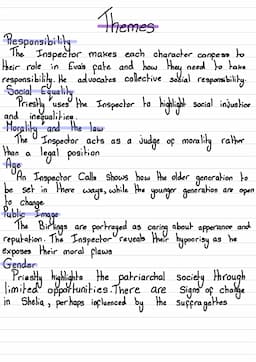 Themes
Responsibility
The Inspector makes each character confess to
their role in Eva's fate and how they need to take
responsibility. He advocates collective social responsibility.
Social Equality
Priestly uses the Inspector to highlight social injustice
and inequalities.
Morality and the law
The Inspector acts as a judge of morality rather
than a legal position
Age
An Inspector Calls shows how the older generation to
be set in there ways, while the younger generation are open
to change
Public Image
The Birlings are portrayed as caring about apperance and
reputation. The Inspector reveals their hypocrisy as he
exposes their moral flaws
Gender
Priestly highlights the patriarchal society through
limited opportunities. There are signs of change
in Shelia, perhaps influenced by the suffragettes